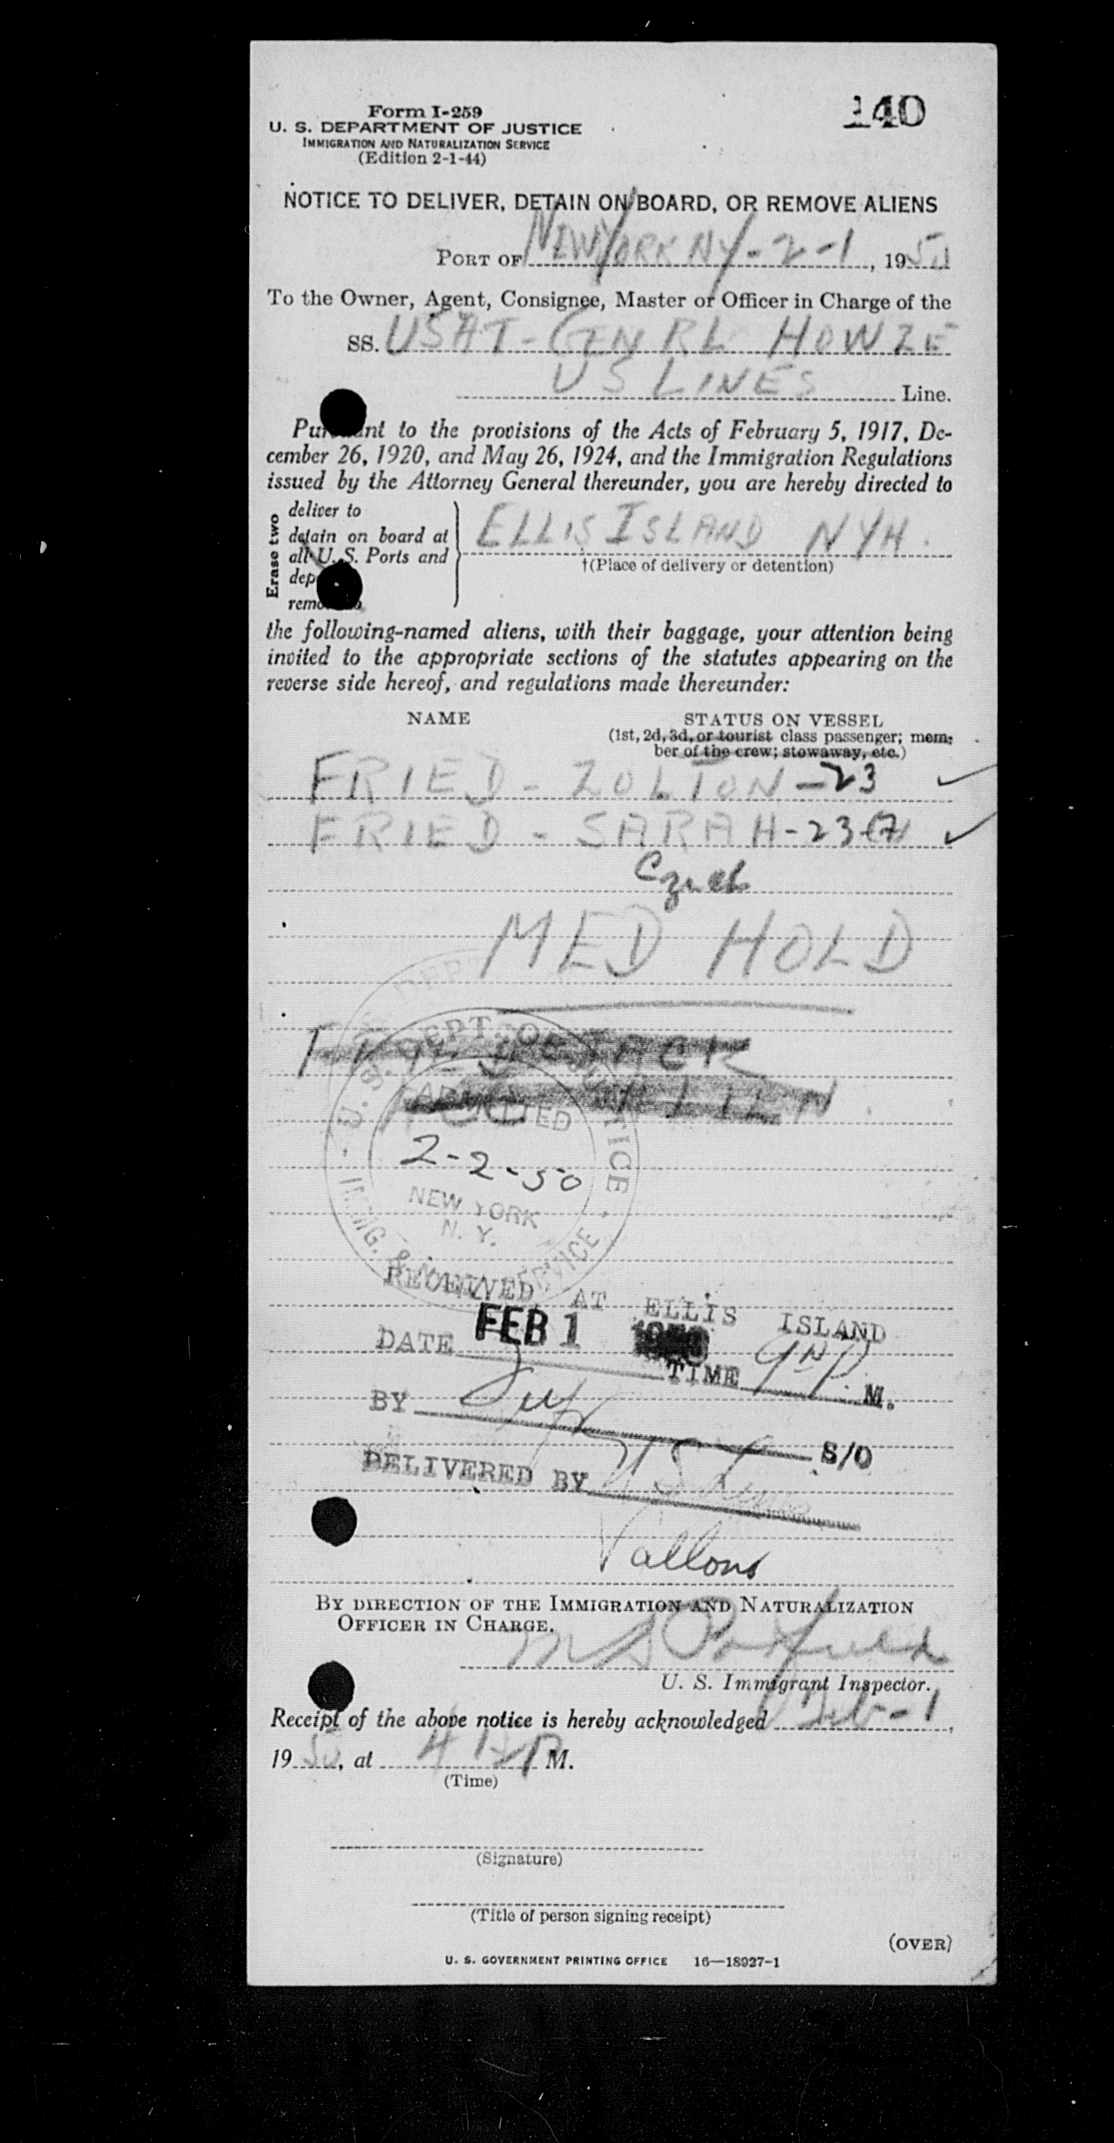 140
Form I-259
U. S. DEPARTMENT OF JUSTICE
IMMIGRATION AND NATURALIZATION SERVICE
(Edition 2-1-44)
NOTICE TO DELIVER, DETAIN ON BOARD, OR REMOVE ALIENS
PORT OF NEW YORK NY - 2 - 1, 1950
To the Owner, Agent, Consignee, Master or Officer in Charge of the
SS. USAT - GENRL HOWZE
US LINES Line.
Pursuant to the provisions of the Acts of February 5, 1917, De-
cember 26, 1920, and May 26, 1924, and the Immigration Regulations
issued by the Attorney General thereunder, you are hereby directed to
Erase two
deliver to
detain on board at
all U. S. Ports and
ELLIS ISLAND NYH.
†(Place of delivery or detention)
the following-named aliens, with their baggage, your attention being
invited to the appropriate sections of the statutes appearing on the
reverse side hereof, and regulations made thereunder:
NAME STATUS ON VESSEL
(1st, 2d, 3d, or tourist class passenger; mem-
ber of the crew; stowaway, etc.)
FRIED - ZOLTON - 23
FRIED - SARAH - 23 (7)
Czech
MED HOLD
U. S. DEPT. OF JUSTICE
ADMITTED
2-2-50
NEW YORK
N. Y.
IMMIG. & SERVICE
RECEIVED AT ELLIS ISLAND
DATE FEB 1 1950 TIME P. M.
BY S/O
DELIVERED BY U S Lines
Vallons
BY DIRECTION OF THE IMMIGRATION AND NATURALIZATION
OFFICER IN CHARGE.
U. S. Immigrant Inspector.
Receipt of the above notice is hereby acknowledged Feb - 1,
1950, at 4 P M.
(Time)
(Signature)
(Title of person signing receipt)
(OVER)
U. S. GOVERNMENT PRINTING OFFICE 16—18927-1